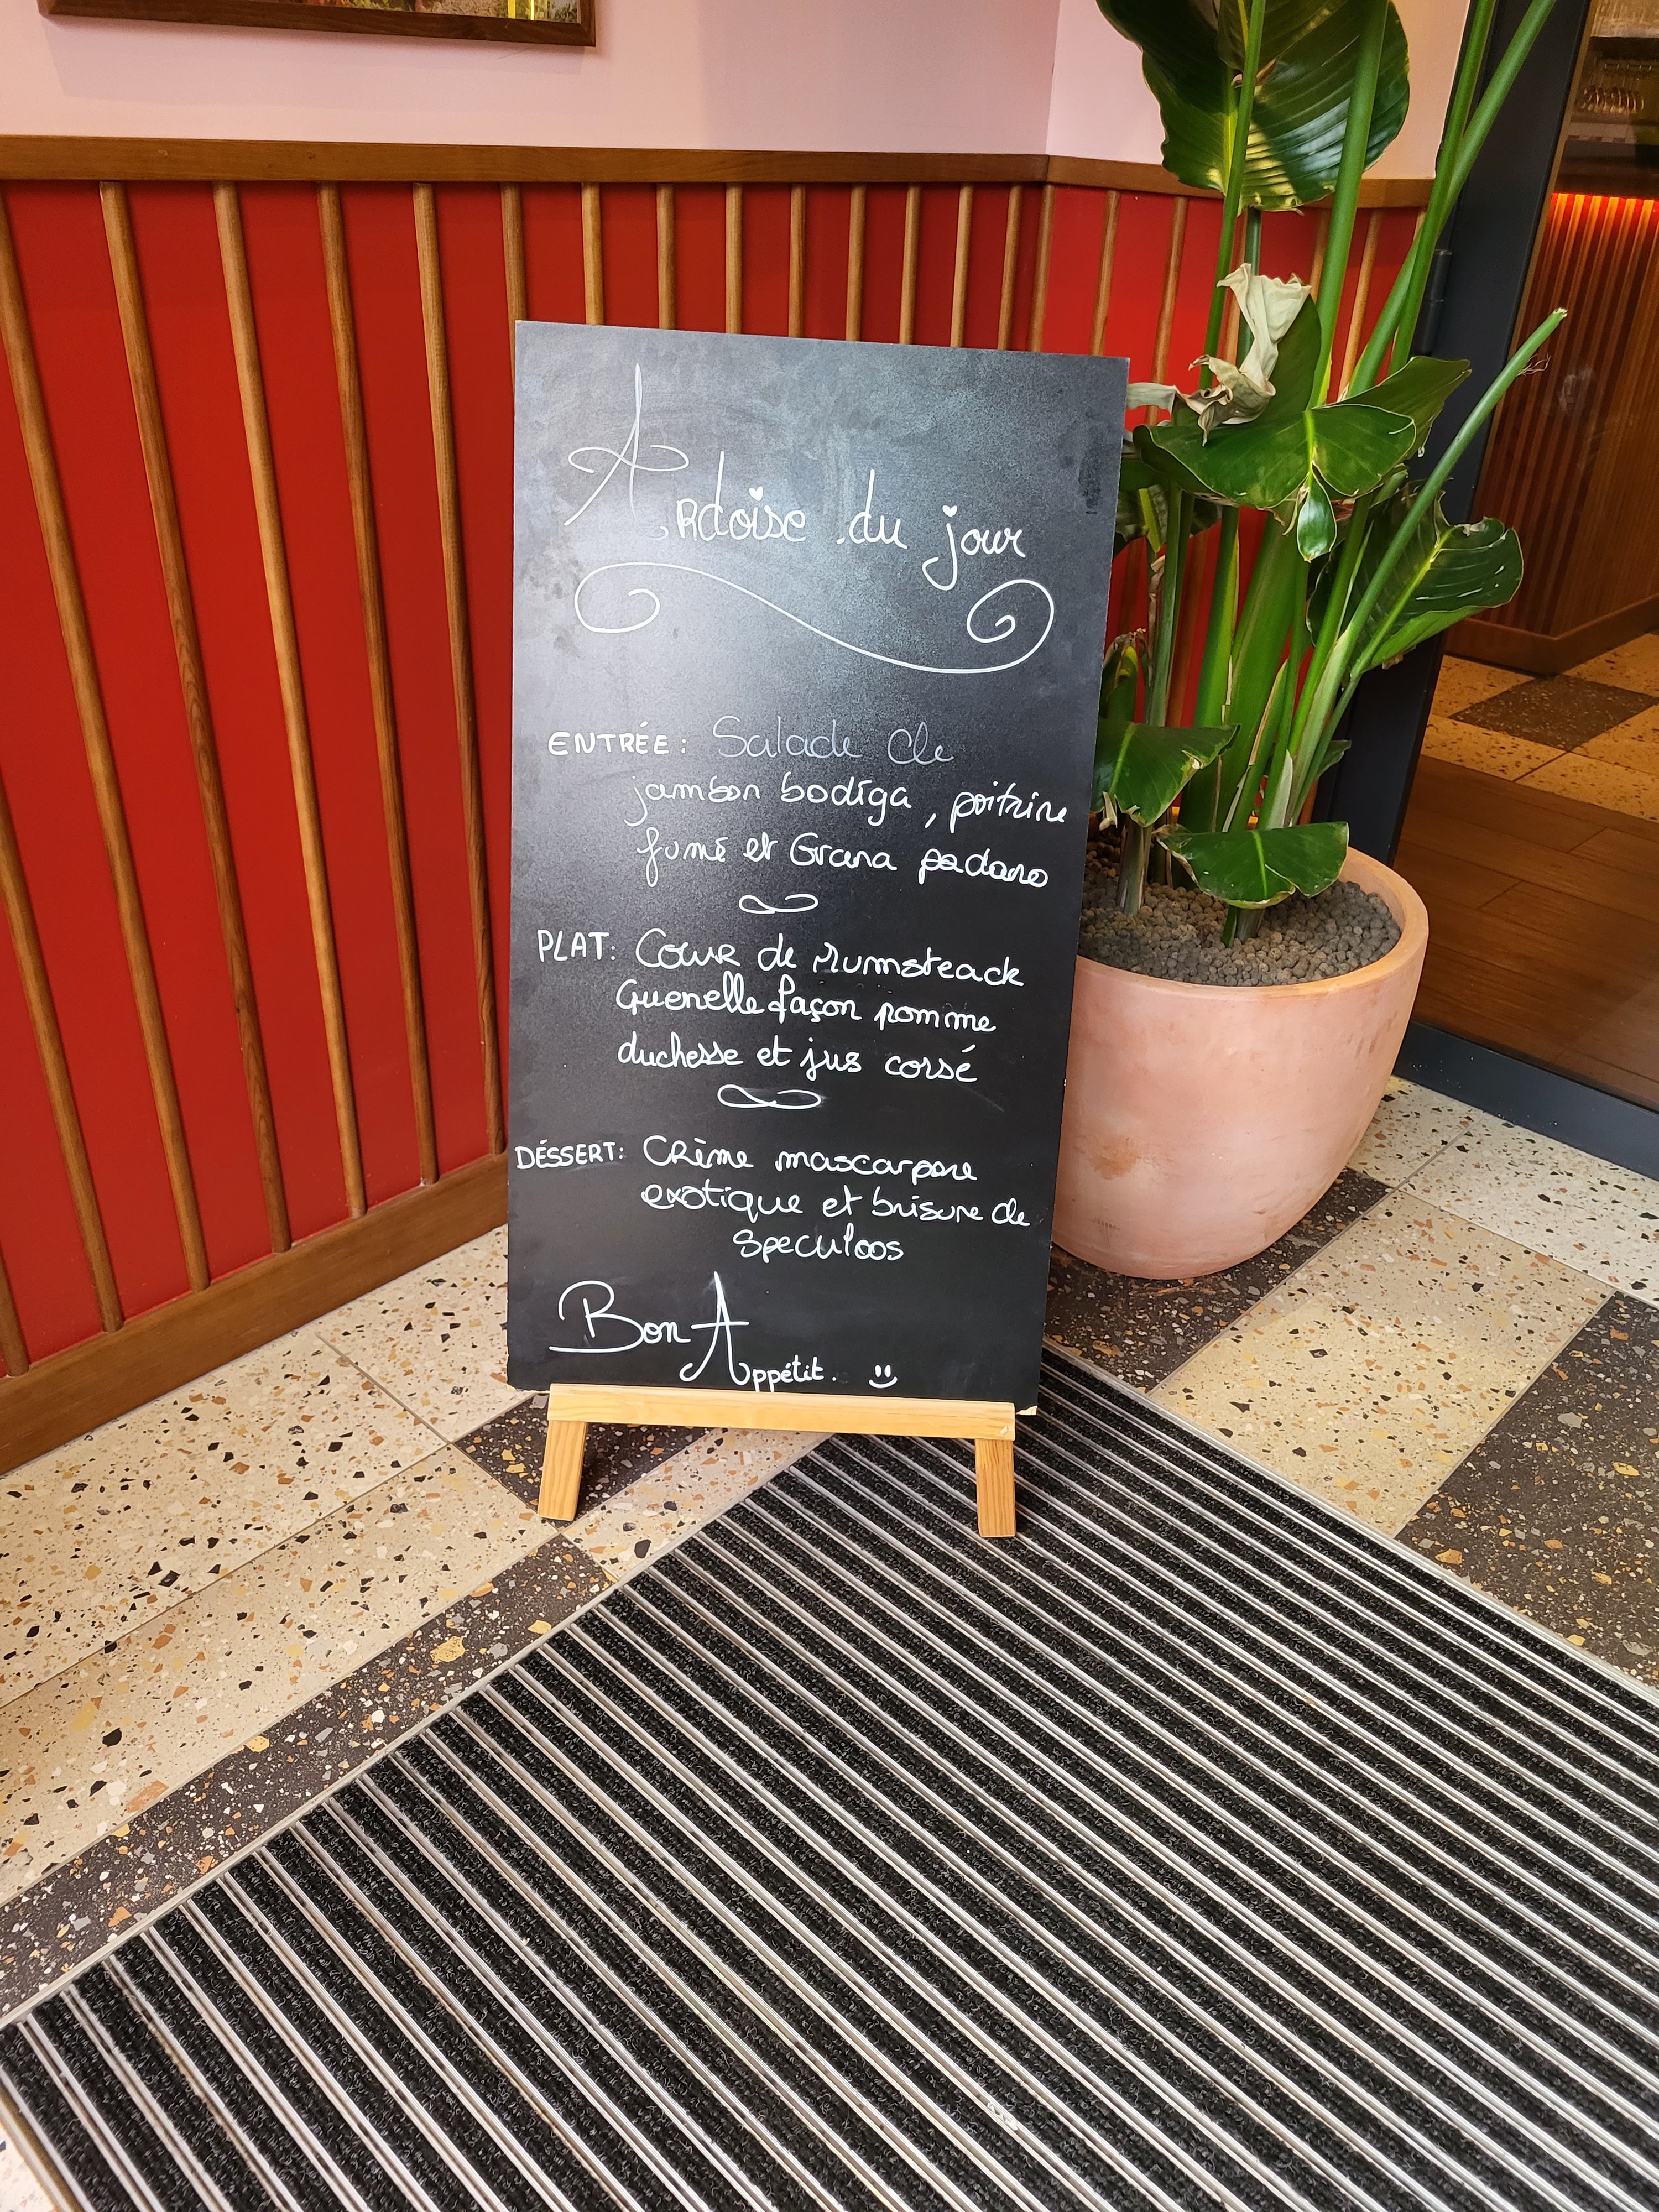 Ardoise du jour
ENTRÉE: Salade de
jambon bodiga, poitrine
fumé et Grana padano
PLAT: Coeur de rumsteack
Quenelle façon pomme
duchesse et jus corsé
DÉSSERT: Crème mascarpone
exotique et brisure de
speculoos
Bon
Appétit.